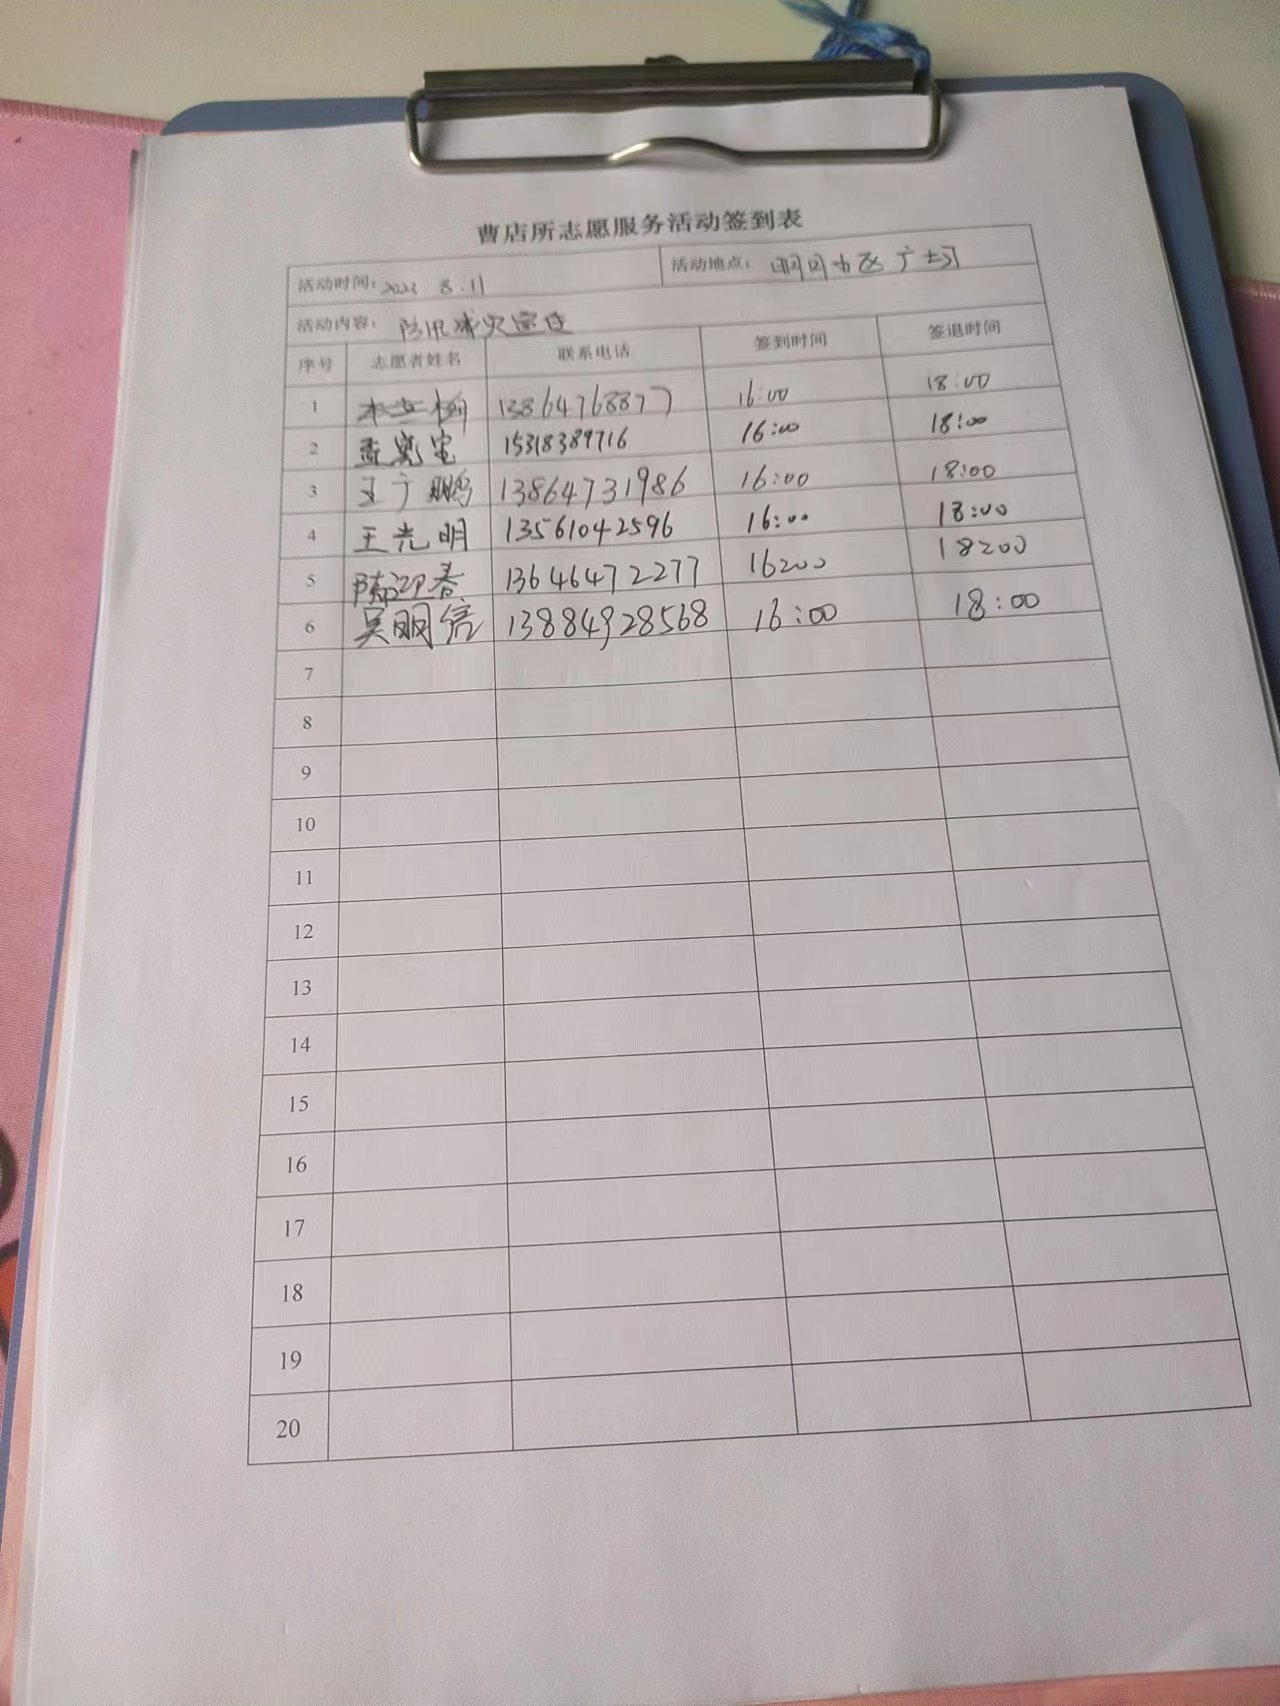 曹店所志愿服务活动签到表
活动时间：2023.8.11 活动地点：明月小区广场
活动内容：防汛减灾宣传
序号 志愿者姓名 联系电话 签到时间 签退时间
1 13864768877 16:00 18:00
2 15318389716 16:00 18:00
3 王广鹏 13864731986 16:00 18:00
4 王光明 13561042596 16:00 18:00
5 陈迎春 13646472277 16:00 18:00
6 吴丽倩 13884928568 16:00 18:00
7
8
9
10
11
12
13
14
15
16
17
18
19
20